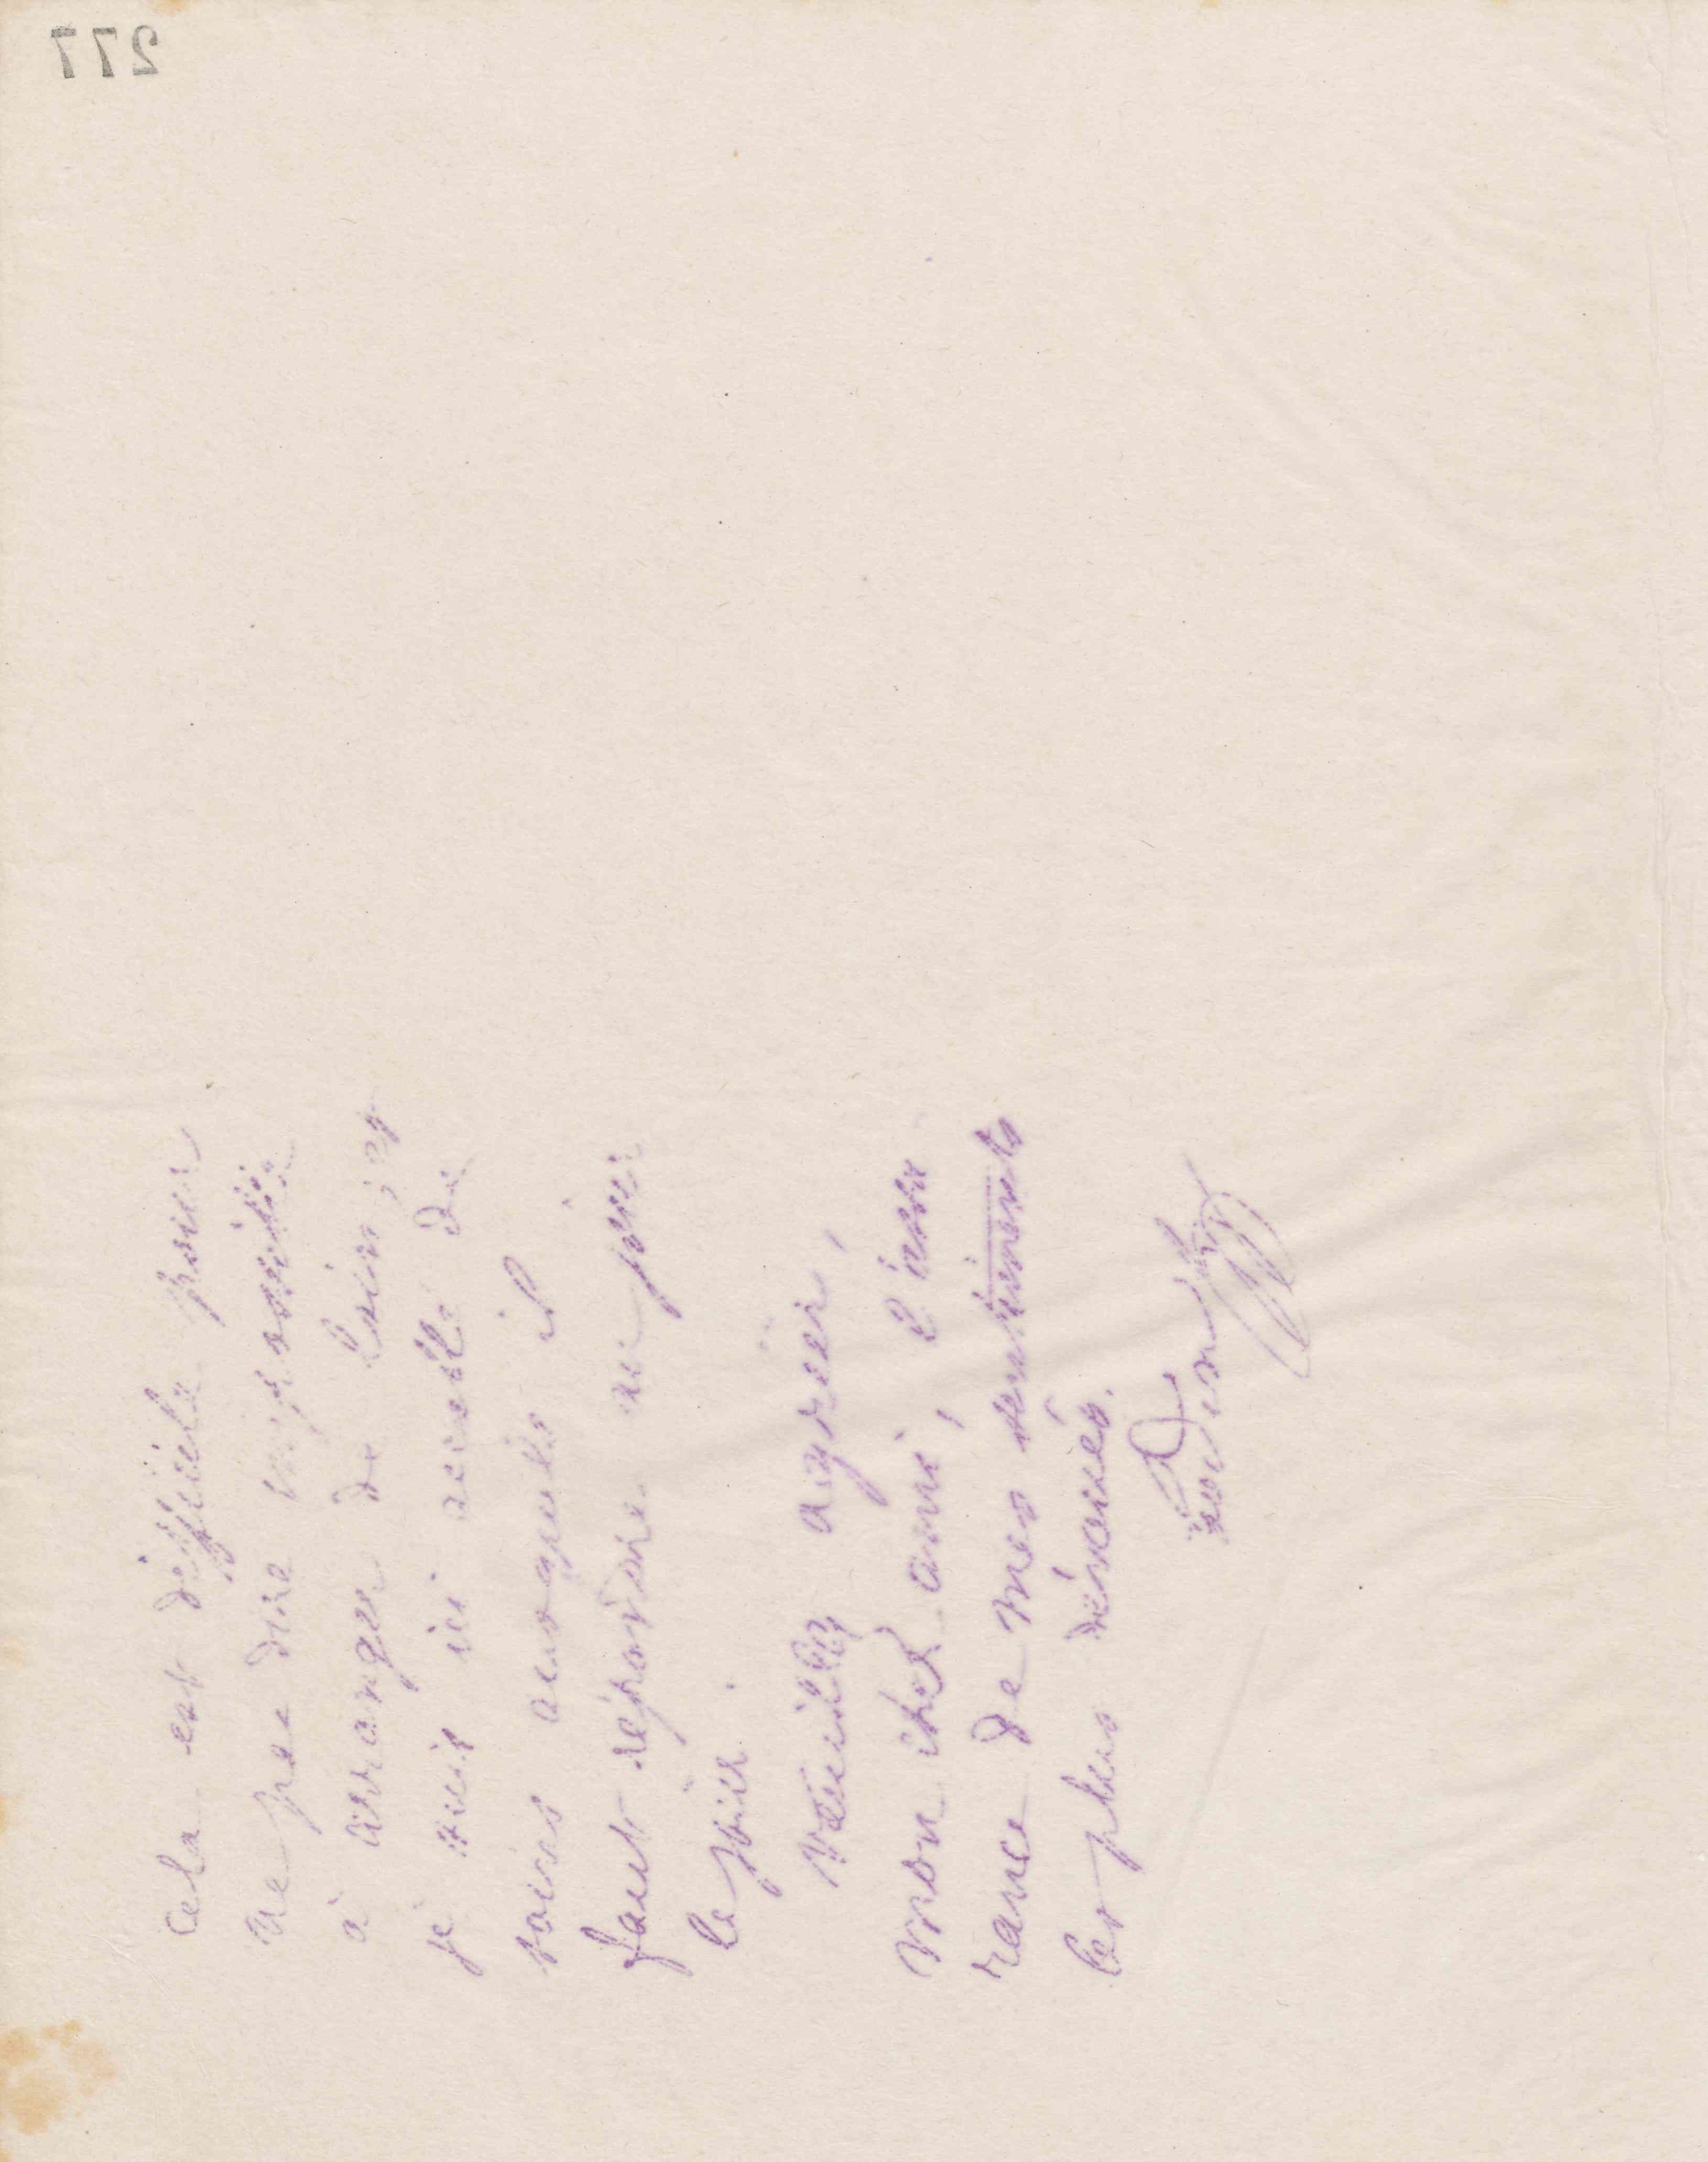 277
cela est difficile pour
ne pas dire impossible
à arranger de loin ; et
je suis ici accablé de
soins auxquels il
faut répondre au jour
le jour.
Veuillez agréer,
mon cher ami, l'assu
rance de mes sentiments
les plus dévoués.